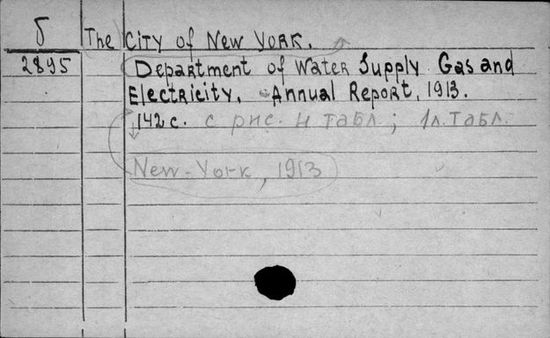 Б The City of New York.
2895 Department of Water Supply Gas and
Electricity. Annual Report, 1913.
142 с. с рис. и табл.; 1 л. табл.
New-York, 1913